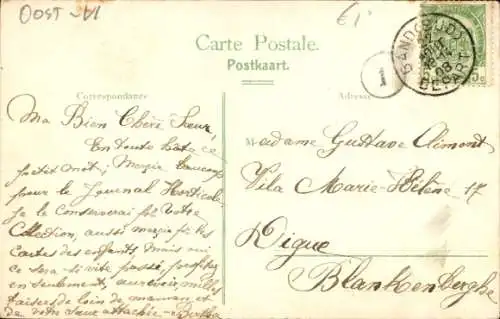 OOST-VI
€1
Carte Postale.
Postkaart.
Correspondance
Adresse
1
GAND GAND
AOUT
08
DEPART
5c
Ma Bien Chère Sœur,
En toute hâte ce
petit mot; Merci beaucoup
pour le Journal Horticole
je le conserverai pr votre
Collection, aussi merci pr les
Cartes des enfants. Mais oui
ce sera si vite passé, profitez
en seulement, au revoir, milles
baisers de loin de maman, et
de votre sœur attachée
Madame Gustave Alimont
Vila Marie-Hélène 17
Digue
Blankenberghe